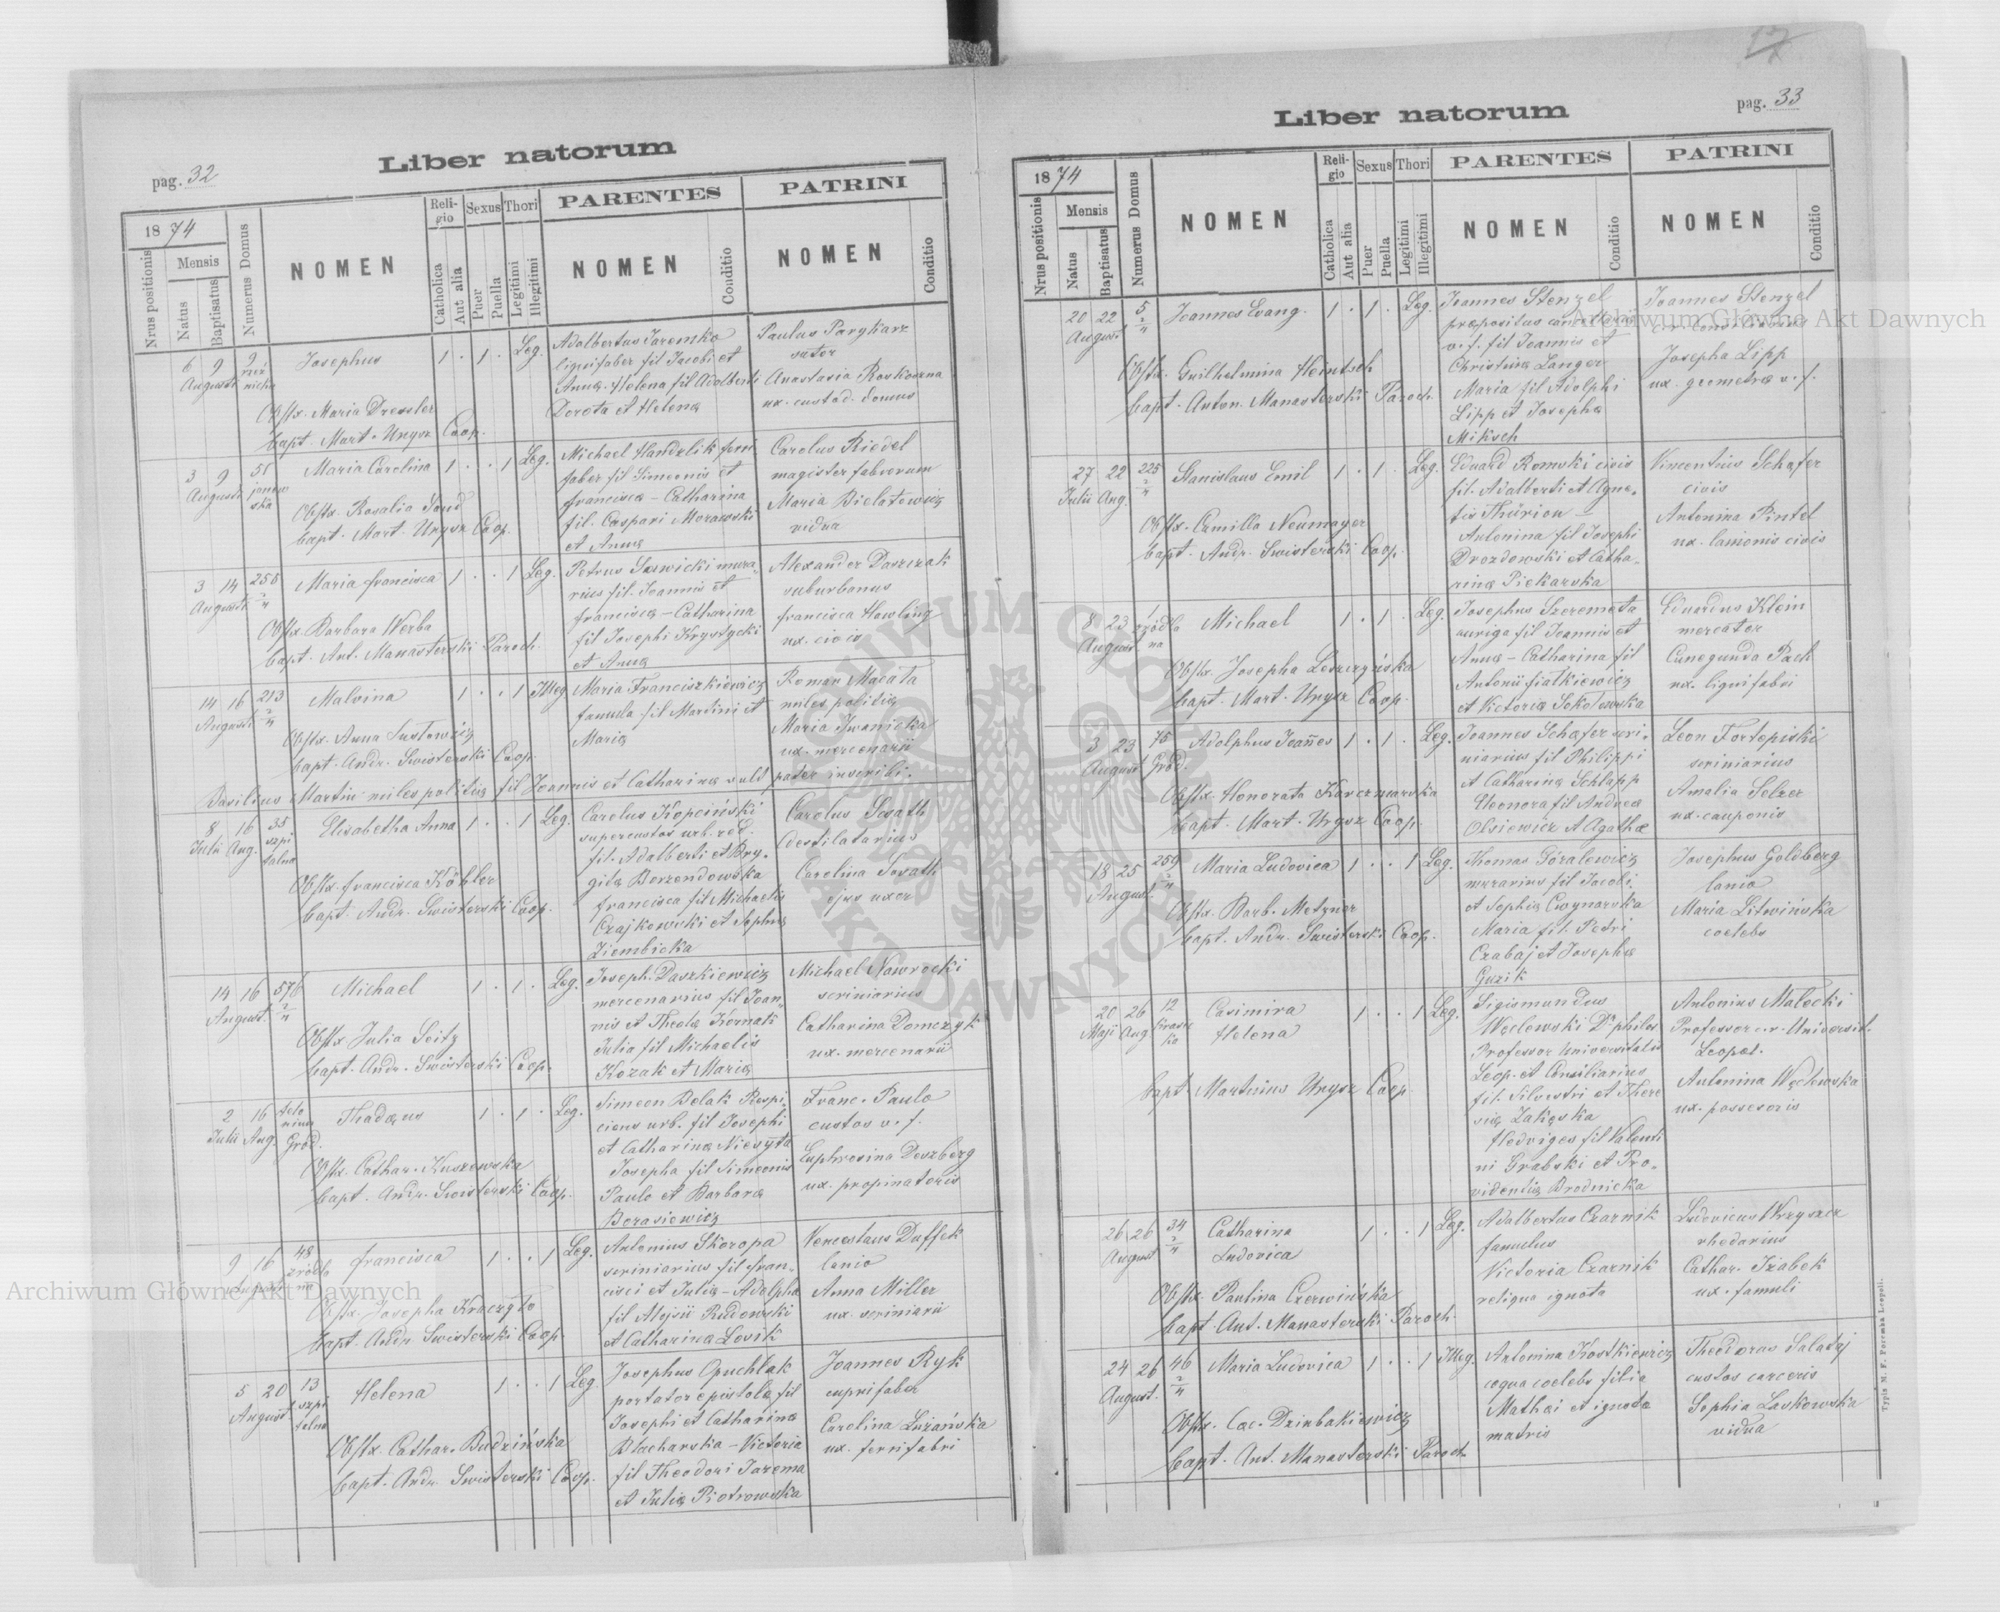 17
pag. 32
Liber natorum
1874
Nrus positionis
Mensis
Natus
Baptisatus
Numerus Domus
NOMEN
Religio
Catholica
Aut alia
Sexus
Puer
Puella
Thori
Legitimi
Illegitimi
PARENTES
NOMEN
Conditio
PATRINI
NOMEN
Conditio
6 9 9
Augusti
Josephus 1 . 1 . Leg.
Obstx. Maria Dressler
bapt. Mart. Urysz Coop.
Adalbertus Jaremko
lignifaber fil Jacobi et
Anna. Helena fil Adalberti
Dorota et Helena
Paulus Parykarz
sutor
Anastasia
ux. custod. domus
3 9 51
Augusti janow
ska
Maria Carolina 1 . . 1 Leg.
Obstx. Rosalia
bapt. Mart. Urysz Coop.
Michael Handzlik ferri
faber fil Simeonis et
francisca - Catharina
fil. Caspari Morawski
et Anna
Carolus Riedel
magister fabrorum
Maria Bielatowicz
vidua
3 14 258 2/4
Augusti
Maria francisca 1 . . 1 Leg.
Obstx Barbara Werba
bapt. Ant. Manasterski Paroch.
Petrus Sawicki mura-
rius fil. Joannis et
francisca - Catharina
fil Josephi Krystycki
et Anna
Alexander Daszczak
suburbanus
francisca Howling
ux. civis
14 16 213 2/4
Augusti
Malvina 1 . . 1 Illeg
Obstx. Anna Sustowicz
bapt. Andr. Swisterski Coop.
Maria Franciszkiewicz
famula fil Martini et
Maria
Roman Macata
miles politia
Maria Iwanicka
ux. mercenarii
Basilius Martin miles politia fil Joannis et Catharina vult pater inscribi.
8 16 35
Julii Aug. szpi
talna
Elisabetha Anna 1 . . 1 Leg.
Obstx. francisca Köhler
bapt. Andr. Swisterski Coop.
Carolus Kopciński
supercustos urb. red.
fil. Adalberti et Bry-
gita Borzendowska
francisca fil Michaelis
Czajkowski et Sophia
Ziembicka
Carolus Sasath
destilatorius
Carolina Sasath
ejus uxor
14 16 576 2/4
August.
Michael 1 . 1 . Leg.
Obstx Julia Seitz
bapt. Andr. Swisterski Coop.
Joseph. Daszkiewicz
mercenarius fil Joan-
nis et Thecla Kornak
Julia fil Michaelis
Kozak et Maria
Michael Nawrocki
scriniarius
Catharina Domczyk
ux. mercenarii
2 16
Julii Aug. Gród.
Thadæus 1 . 1 . Leg.
Obstx. Cathar. Kuszewska
bapt. Andr. Swisterski Coop.
Simeon Belak Respi-
ciens urb. fil Josephi
et Catharina Niesyta
Josepha fil Simeonis
Paulo et Barbara
Borasiewicz
Franc. Paulo
custos v. f.
Euphrosina Doszberg
ux. propinatoris
9 16 48
August źródla
na
francisca 1 . . 1 Leg.
Obstx. Josepha Kraczyło
bapt. Andr. Swisterski Coop.
Antonius Skoropa
scriniarius fil fran-
cisci et Julia - Adolpha
fil Alojsii Rudowski
et Catharina Lovik
Venceslaus Duffek
lanio
Anna Miller
ux. scriniarii
5 20 13
August. szpi
talna
Helena 1 . . 1 Leg.
Obstx. Cathar. Budzińska
bapt. Andr. Swisterski Coop.
Josephus Opuchlak
portator epistola fil
Josephi et Catharina
Blacharska - Victoria
fil Theodori Jarema
et Julia Piotrowska
Joannes Ryk
cuprifaber
Carolina Luzańska
ux. ferrifabri
pag. 33
Liber natorum
1874
Nrus positionis
Mensis
Natus
Baptisatus
Numerus Domus
NOMEN
Religio
Catholica
Aut alia
Sexus
Puer
Puella
Thori
Legitimi
Illegitimi
PARENTES
NOMEN
Conditio
PATRINI
NOMEN
Conditio
20 22 5 2/4
August
Joannes Evang. 1 . 1 . Leg.
Obstx. Guilhelmina Heintsch
bapt. Anton. Manasterski Paroch.
Joannes Stenzel
præpositus cancellariæ
v. f. fil Joannis et
Christina Langer
Maria fil Adolphi
Lipp et Josepha
Miksch
Joannes Stenzel
c. r. consiliarius
Josepha Lipp
ux. geometra v. f.
27 22 225 2/4
Julii Aug.
Stanislaus Emil 1 . 1 . Leg.
Obstx. Camilla Neumayer
bapt. Andr. Swisterski Coop.
Eduard Romski civis
fil. Adalberti et Agne-
tis Thürion -
Antonina fil Josephi
Drozdowski et Catha-
rina Piekarska
Vincentius Schafer
civis
Antonina Pintel
ux. lanionis civis
8 23 1
August. źródla
na
Michael 1 . 1 . Leg.
Obstx. Josepha Leszczyńska
bapt. Mart. Urysz Coop.
Josephus Szeremeta
auriga fil Joannis et
Anna - Catharina fil
Antonii fialkiewicz
et Victoria Sokołowska
Eduardus Klein
mercator
Cunegunda Pach
ux. lignifabri
3 23 75
August. Gród.
Adolphus Joañes 1 . 1 . Leg.
Obstx. Honorata Karczmarska
bapt. Mart. Urysz Coop.
Joannes Schafer scri-
niarius fil Philippi
et Catharina Schlapp
Eleonora fil Andrea
Olsiewicz et Agatha
Leon Fortepiski
scriniarius
Amalia Selzer
ux. cauponis
18 25 259 2/4
August.
Maria Ludovica 1 . . 1 Leg.
Obstx. Barb. Metzner
bapt. Andr. Swisterski Coop.
Thomas Góralewicz
murarius fil Jacobi
et Sophia Cwynarska
Maria fil. Petri
Czabaj et Josepha
Guzik
Josephus Goldberg
lanio
Maria Litwińska
coelebs
20 26 12
Maji Aug. Krasic
ka
Casimira 1 . . 1 Leg.
Helena
bapt. Martinus Urysz Coop.
Sigismundus
Węclewski Dr philos
Professor Universitatis
Leop. et Consiliarius
fil. Silvestri et There
sia Zakęska
Hedviges fil Valenti
ni Grabski et Pro-
videntia Brodnicka
Antonius Małecki
Professor c. r. Universit.
Leopol.
Antonina Węclewska
ux. possesoris
26 26 34 2/4
August
Catharina 1 . . 1 Leg.
Ludovica
Obstx Paulina Czerwińska
bapt Ant. Manasterski Paroch.
Adalbertus Czarnik
famulus
Victoria Czarnik
reliqua ignota
Ludovicus Wrzyszcz
rhedarius
Cathar. Izabek
ux. famuli
24 26 46 2/4
August.
Maria Ludovica 1 . . 1 Illeg.
Obstx. Cac. Dzirbakiewicz
bapt. Ant. Manasterski Paroch.
Antonina Kostkiewicz
coqua coelebs filia
Mathæi et ignota
matris
Theodorus Salataj
custos carceris
Sophia Laskowska
vidua
Typis M. F. Poremba Leopoli.
Archiwum Główne Akt Dawnych
Archiwum Główne Akt Dawnych
ARCHIWUM GŁÓWNE AKT DAWNYCH